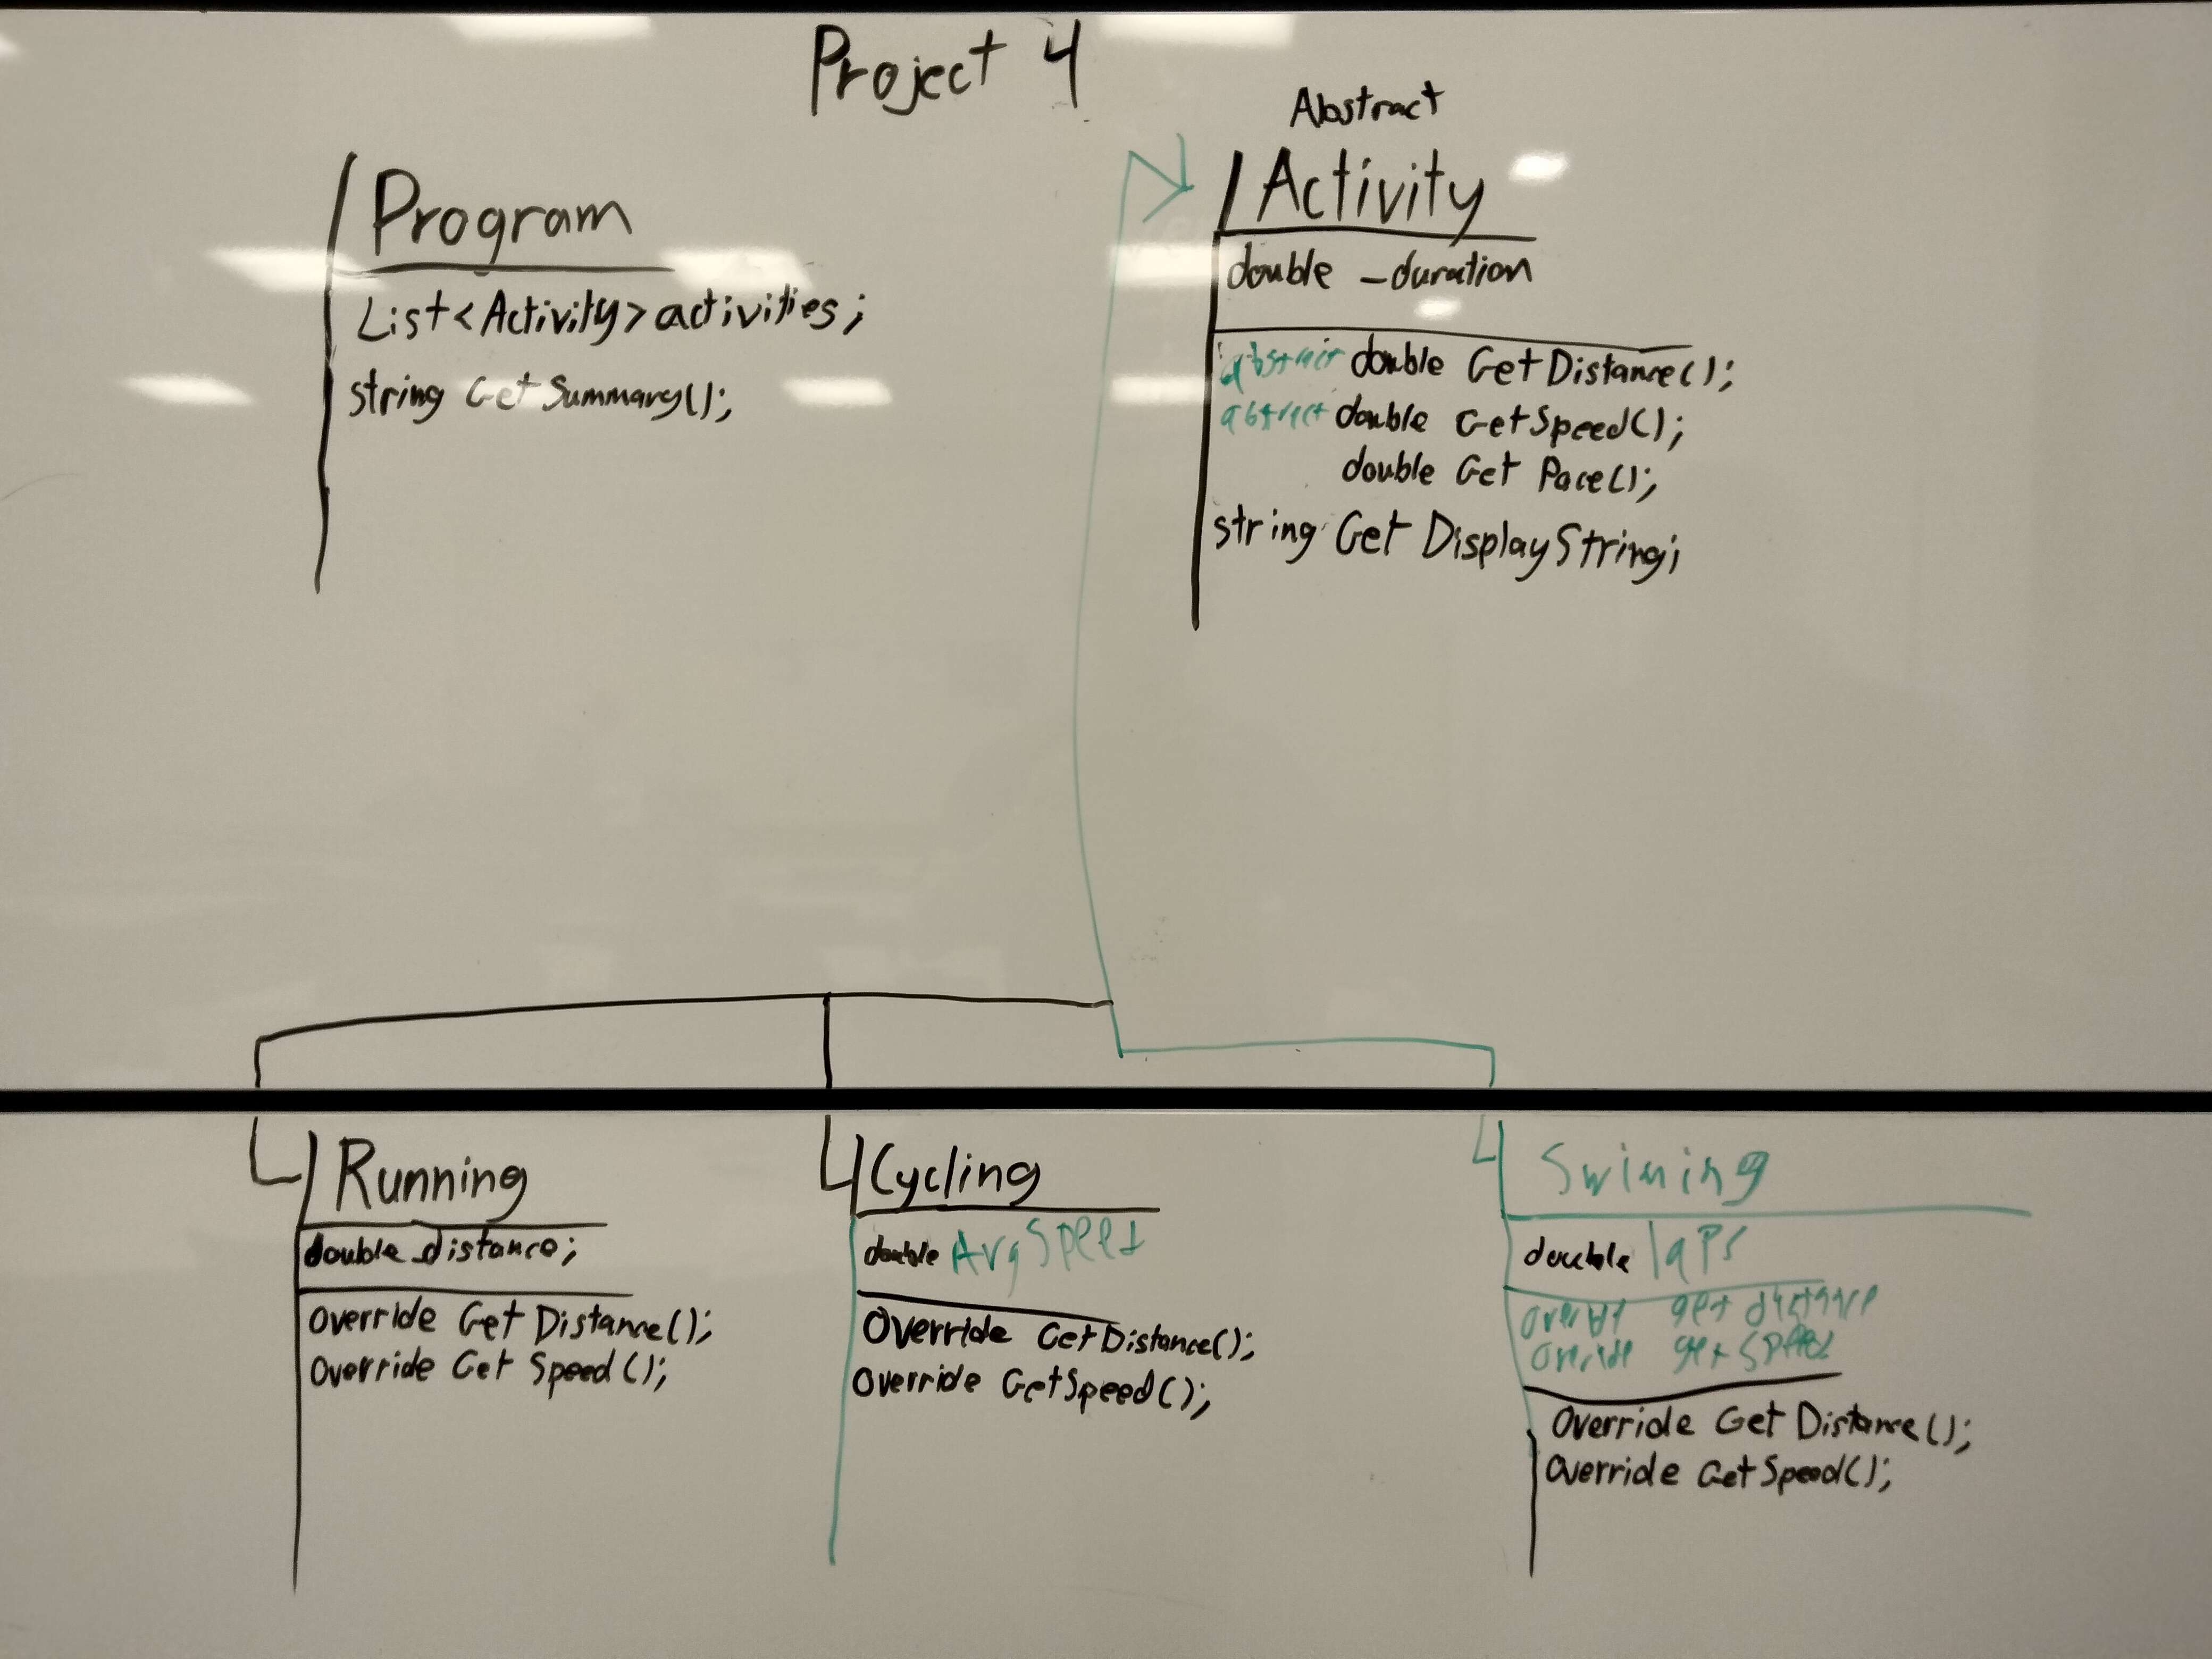 Project 4
Program
List<Activity> activities;
string Get Summary();
Abstract
Activity
double _duration
abstract double GetDistance();
abstract double GetSpeed();
double Get Pace();
string Get DisplayString;
Running
double _distance;
Override Get Distance();
Override Get Speed();
Cycling
double AvgSpeed
Override GetDistance();
Override GetSpeed();
Swiming
double laps
get distance
Override get speed
Override Get Distance();
Override GetSpeed();